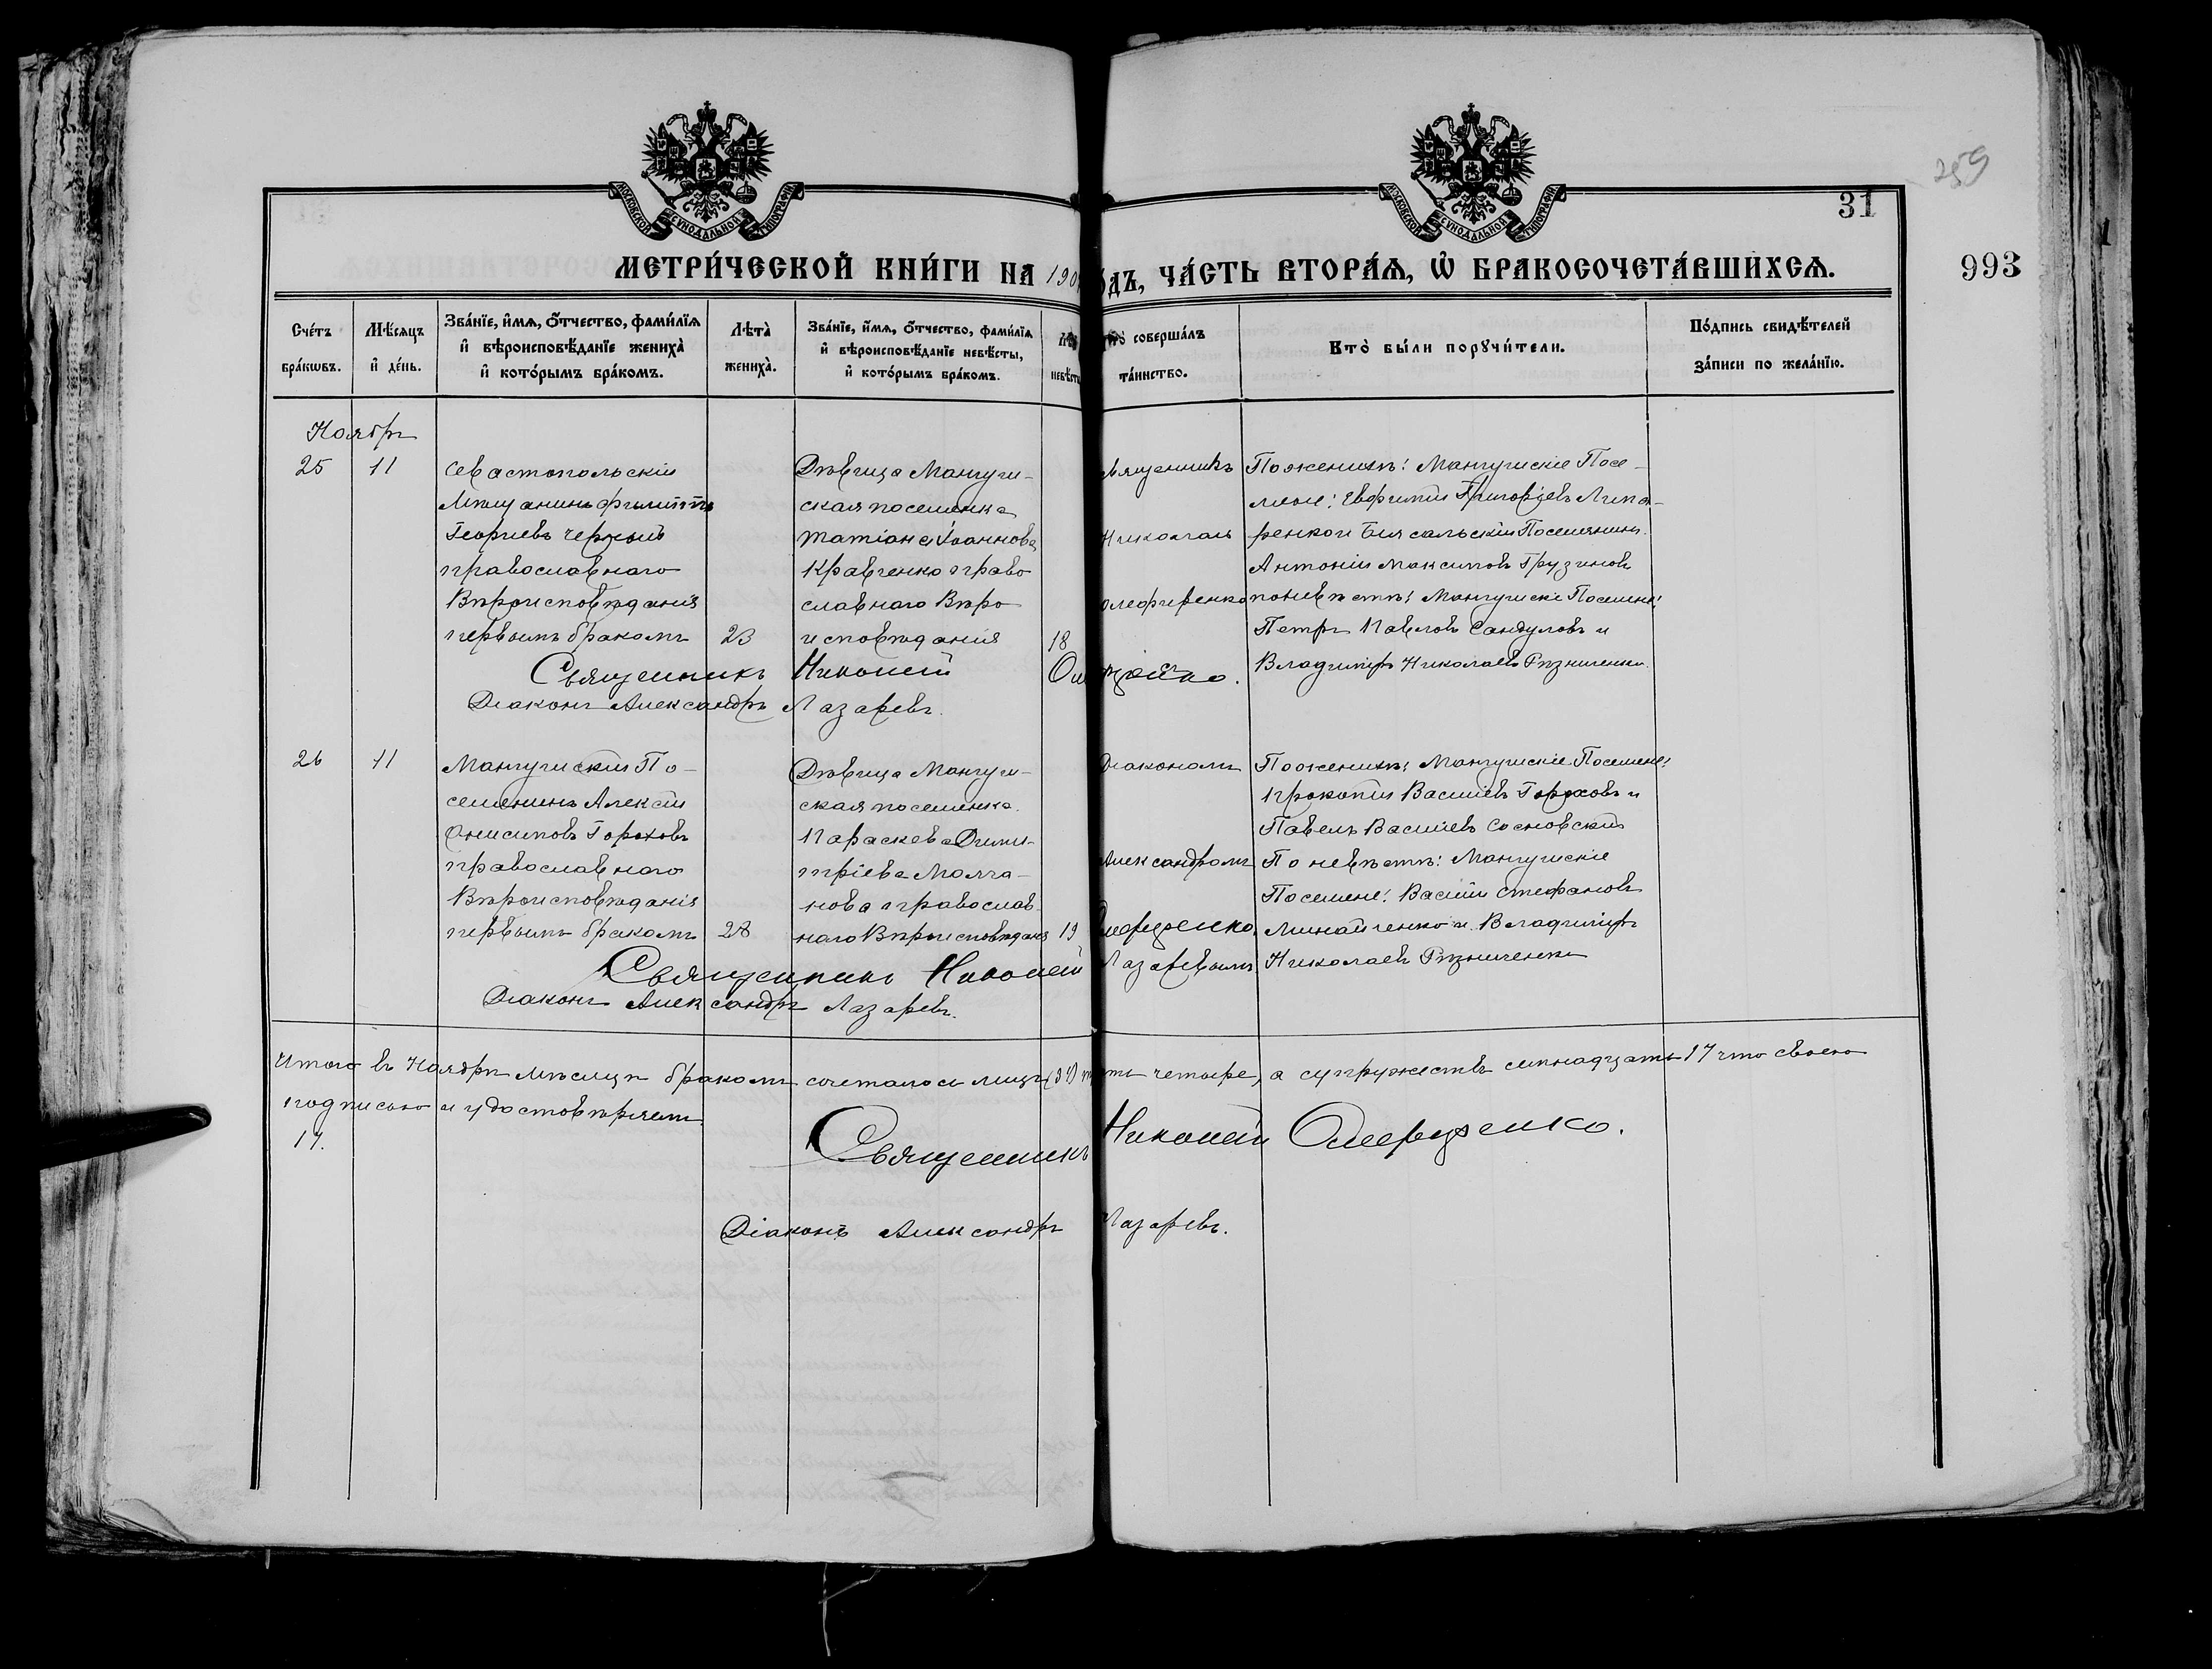 259
31
993
МОСКОВСКОЙ СѴНОДАЛЬНОЙ ТИПОГРАФІИ
МОСКОВСКОЙ СѴНОДАЛЬНОЙ ТИПОГРАФІИ
МЕТРИ́ЧЕСКОЙ КНИ́ГИ НА 190
ДЪ, ЧА́СТЬ ВТОРА́Я, Ѡ҆ БРАКОСОЧЕТА́ВШИХСЯ.
Сче́тъ бра́кѡвъ.
Мѣ́сяцъ и҆ де́нь.
Зва́нїе, и҆́мя, о҆́тчество, фами́лїя и҆ вѣроисповѣ́данїе жениха̀ и҆ кото́рымъ бра́комъ.
Лѣ́та̀ жениха̀.
Зва́нїе, и҆́мя, о҆́тчество, фами́лїя и҆ вѣроисповѣ́данїе невѣ́сты, и҆ кото́рымъ бра́комъ.
Лѣ невѣ́сты
то̀ соверша́лъ та́инство.
Кто̀ бы́ли порꙋчи́тели.
По́дпись свидѣ́телей за́писи по жела́нїю.
Ноябрь
25 11
Севастопольскій
Мѣщанинъ Филиппъ
Георгіевъ Черный
православнаго
Вѣроисповѣданія
первымъ бракомъ 23
Дѣвица Мангуш-
ская поселянка
Татіана Іоаннова
Кравченко право
славнаго Вѣро
исповѣданія 18
вященникъ
Николай
Олефиренко
По женихѣ: Мангушскіе Посе-
ляне: Евфимій Григорьевъ Липа-
ренко и Біясальскій Поселянинъ
Антоній Максимовъ Грузиновъ
по невѣстѣ: Мангушскіе Поселяне:
Петръ Павловъ Сандуловъ и
Владиміръ Николаевъ Рѣзниченко.
Священникъ Николай
Діаконъ Александръ Лазаревъ.
26 11
Мангушскій По-
селянинъ Алексій
Онисимовъ Гороховъ
православнаго
Вѣроисповѣданія
первымъ бракомъ 28
Дѣвица Мангуш-
ская поселянка
Параскева Дими-
тріева Молча-
нова православ-
наго Вѣроисповѣданія 19
Діакономъ
Александромъ
Лазаревымъ
По женихѣ: Мангушскіе Поселяне:
Прокопій Васильевъ Гороховъ и
Павелъ Васильевъ Сосновскій
По невѣстѣ: Мангушскіе
Поселяне: Василій Стефановъ
Минайченко и Владиміръ
Николаевъ Рѣзниченко
Священникъ Николай
Діаконъ Александръ Лазаревъ.
Итого въ Ноябрѣ мѣсяцѣ бракомъ сочеталось лицъ (34) четыре, а супружествъ семнадцать 17 что своею
подписью и удостовѣряемъ
17.
Священникъ Николай Олефиренко.
Діаконъ Александръ Лазаревъ.